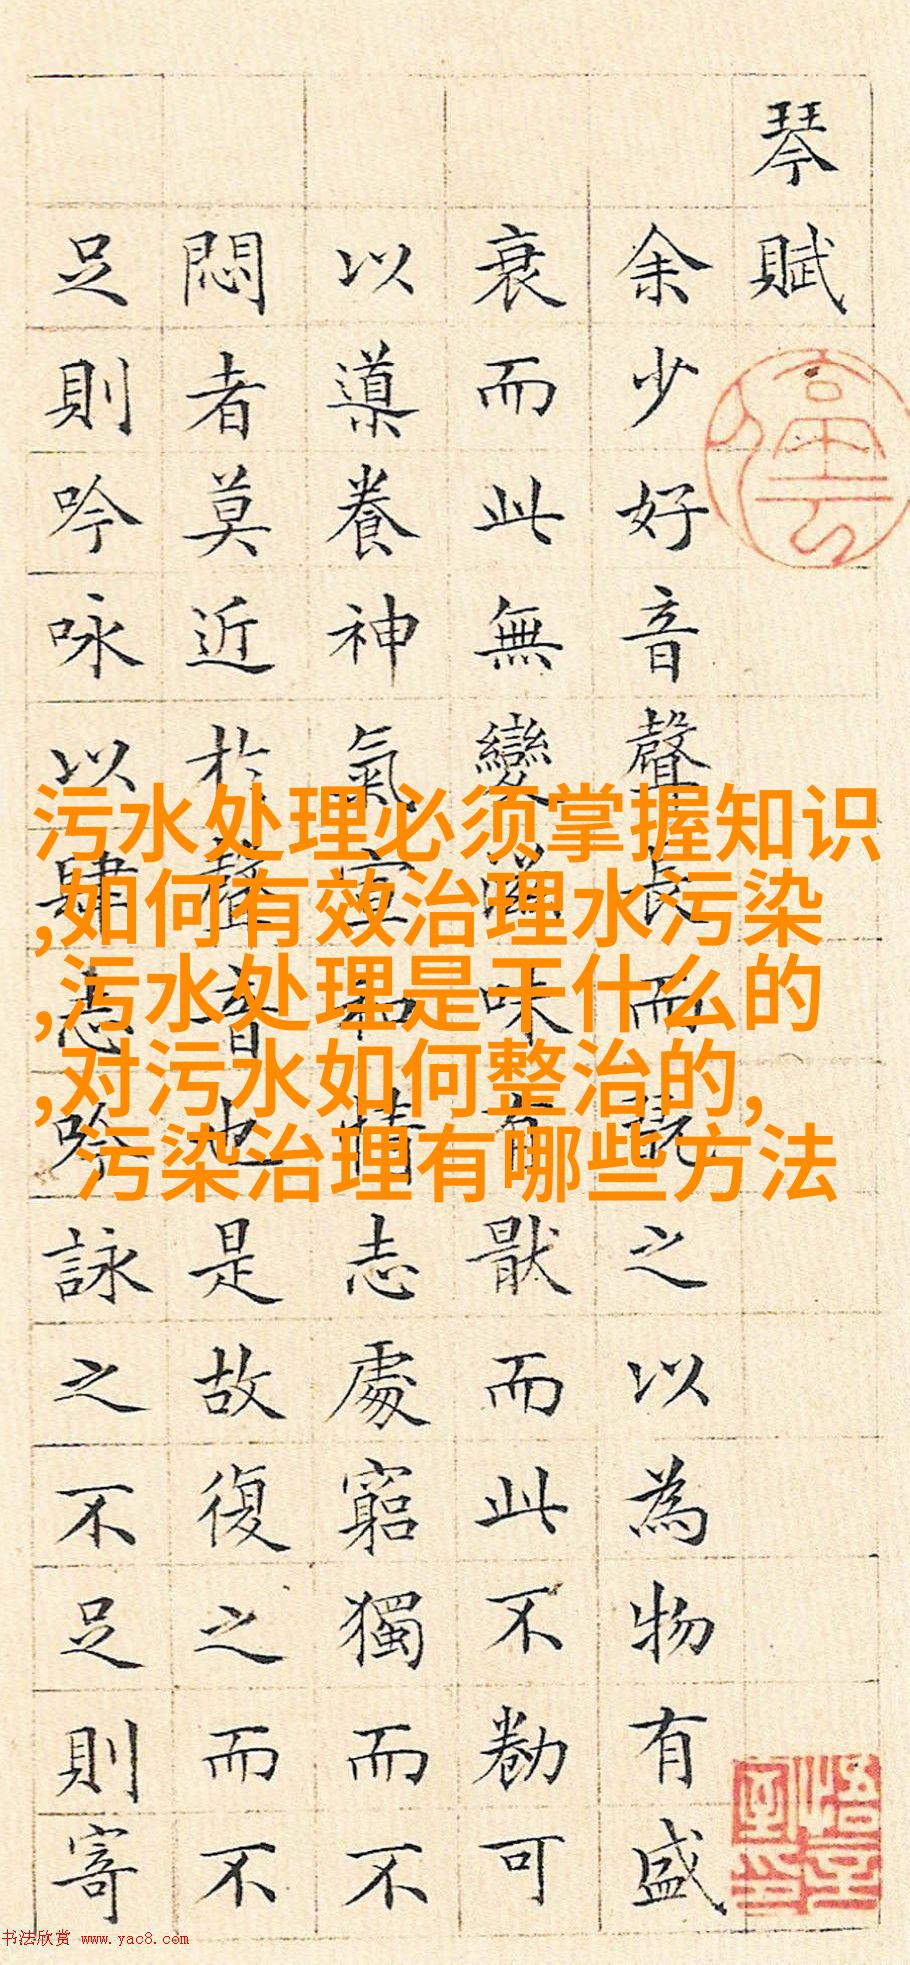 琴賦
余少好音聲長而翫之以為物有盛
衰而此無變滋味有猒而此不勌可
以導養神氣宣和情志處窮獨而不
悶者莫近於聲音也是故復之而不
足則吟咏以肆志吟詠之不足則寄
污水处理必须掌握知识
,如何有效治理水污染
,污水处理是干什么的
,对污水如何整治的,
污染治理有哪些方法
书法欣赏 www.yac8.com